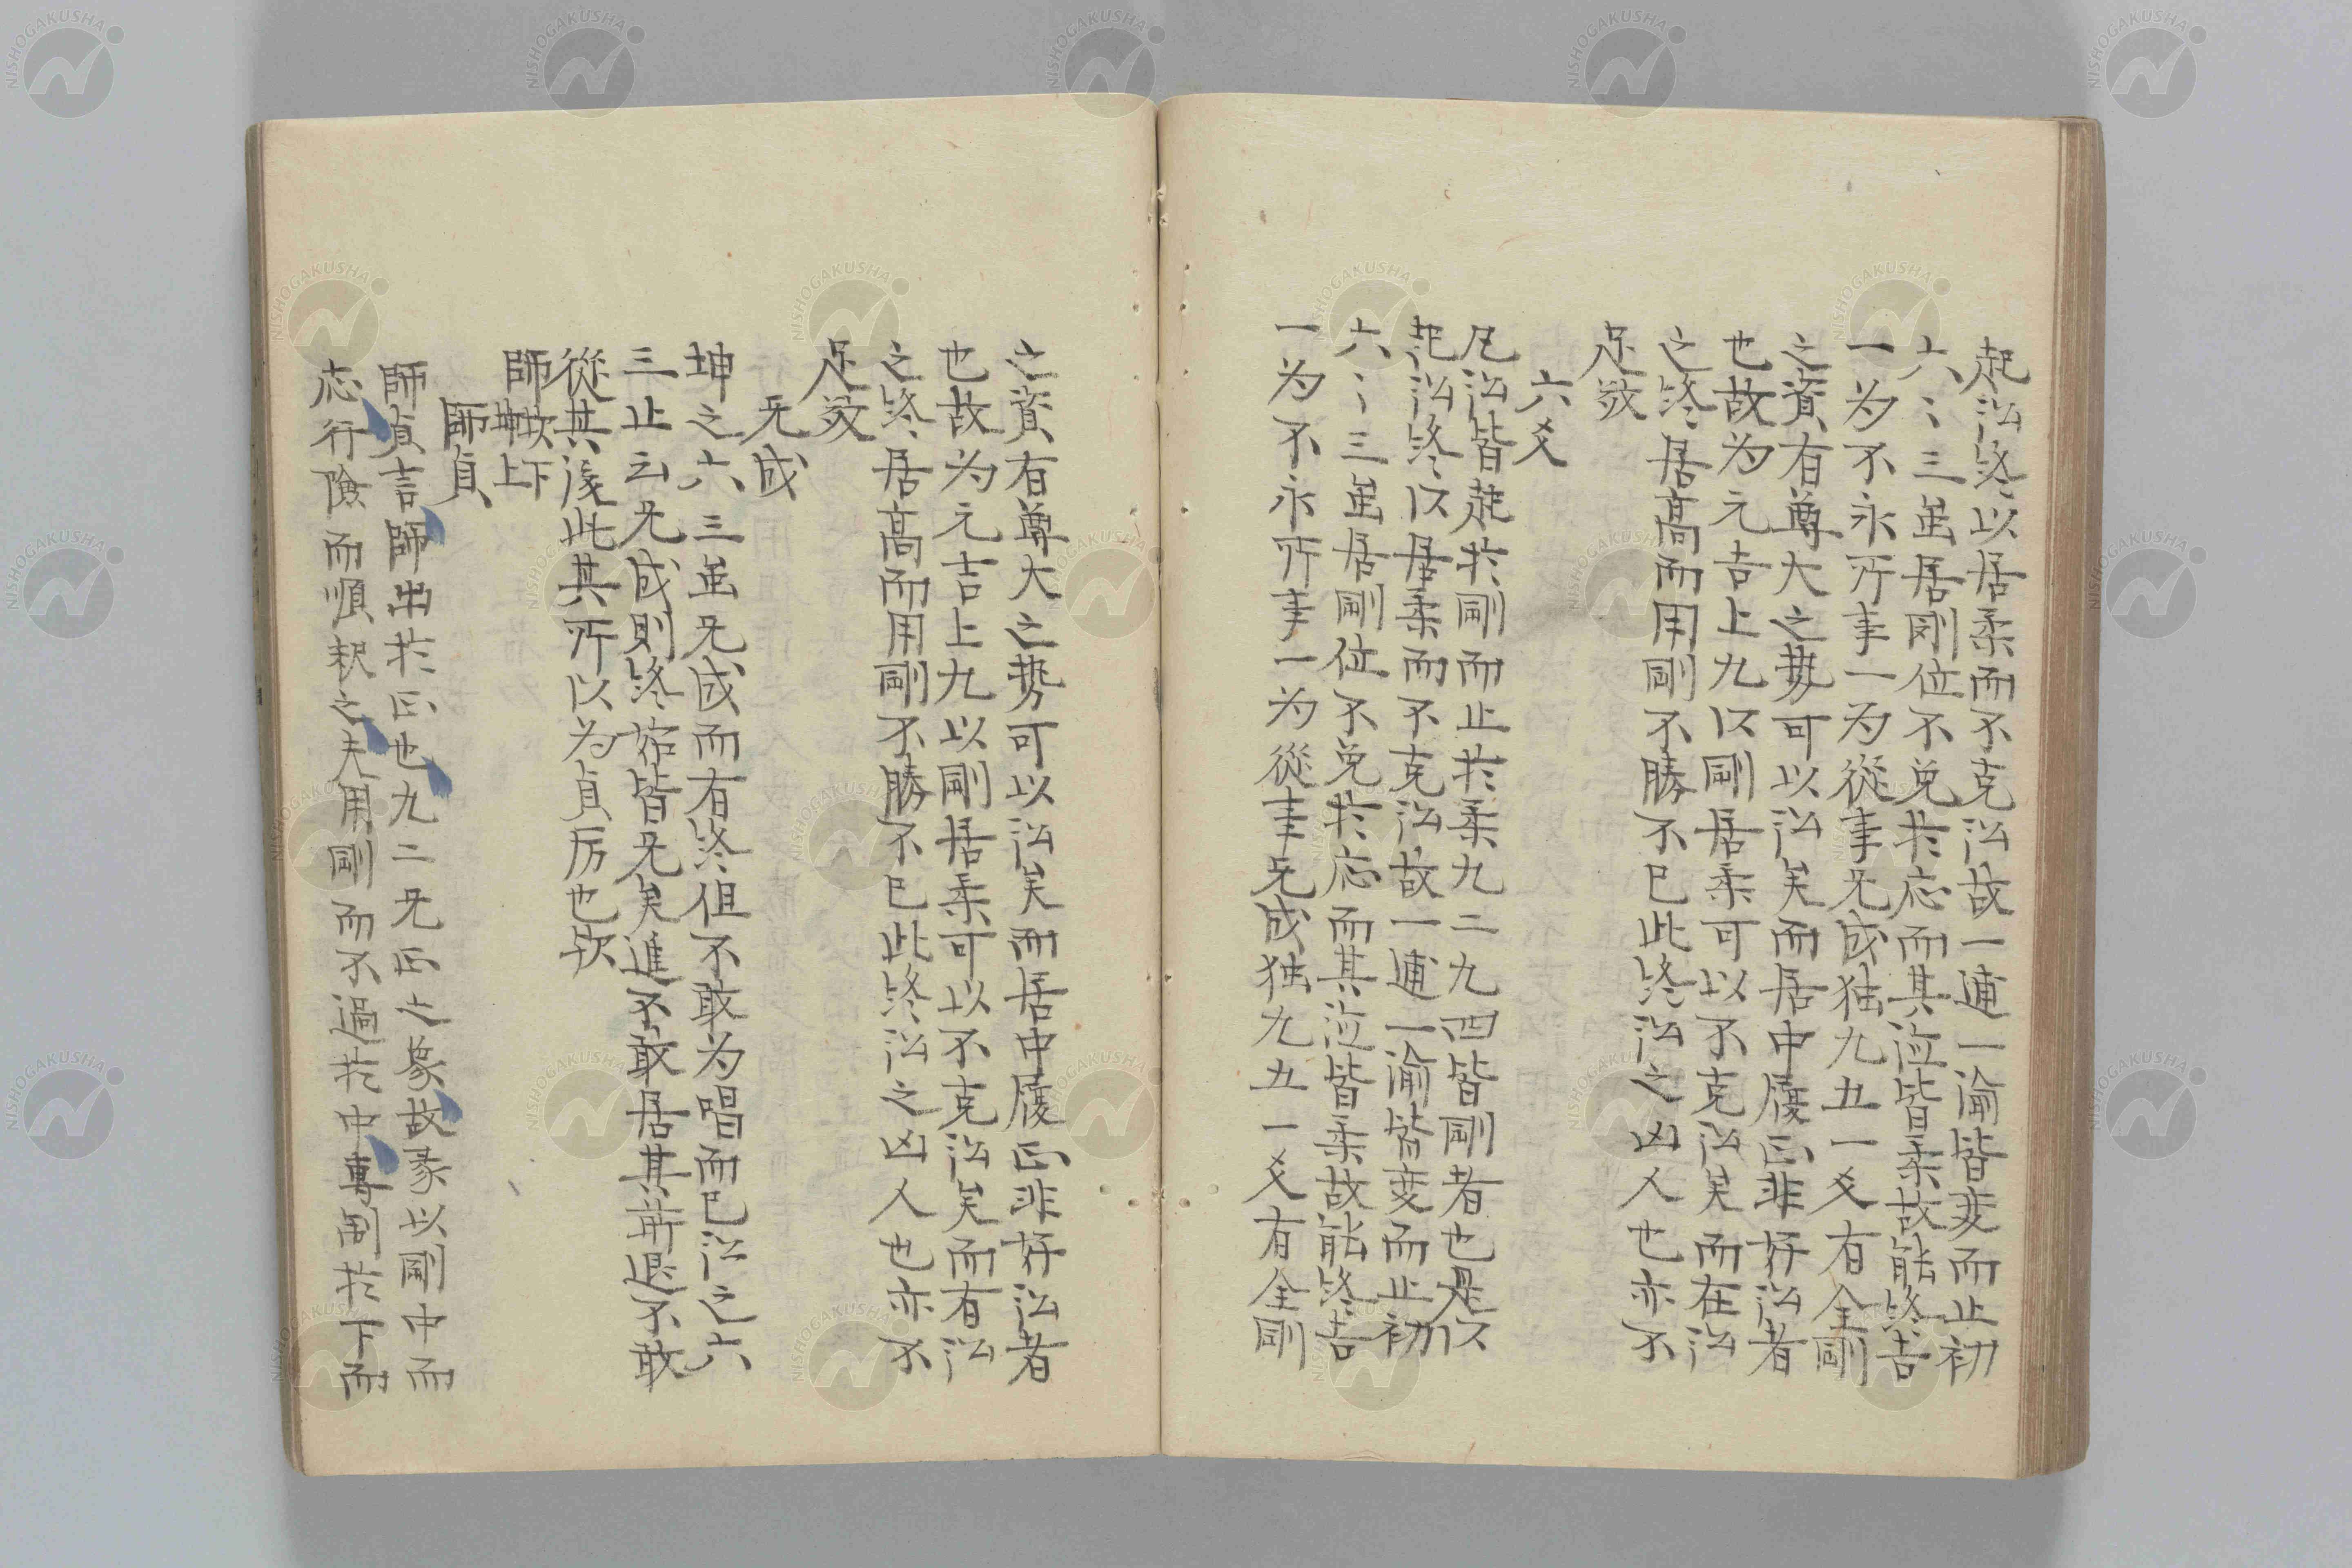 起訟終以居柔而不克訟故一逋一渝皆变而止初
六〻三虽居剛位不免於応而其涖皆柔故能終吉
一为不永所事一为從事无成独九五一爻有全剛
之資有尊大之勢可以訟矣而居中履正非好訟者
也故为元吉上九以剛居柔可以不克訟矣而在訟
之終居高而用剛不勝不已此終訟之凶人也亦不
足敬
六爻
凡訟皆起於剛而止於柔九二九四皆剛者也是以
起訟終以居柔而不克訟故一逋一渝皆变而止初
六〻三虽居剛位不免於応而其涖皆柔故能終吉
一为不永所事一为從事无成独九五一爻有全剛
之資有尊大之勢可以訟矣而居中履正非好訟者
也故为元吉上九以剛居柔可以不克訟矣而有訟
之終居高而用剛不勝不已此終訟之凶人也亦不
足敬
无成
坤之六三虽无成而有終但不敢为唱而已訟之六
三止云无成則終始皆无矣進不敢居其前退不敢
從其後此其所以为貞厉也欤
師 坤上坎下
師貞
師貞言師出於正也九二无正之象故彖以剛中而
応行險而順釈之夫用剛而不過於中專制於下而